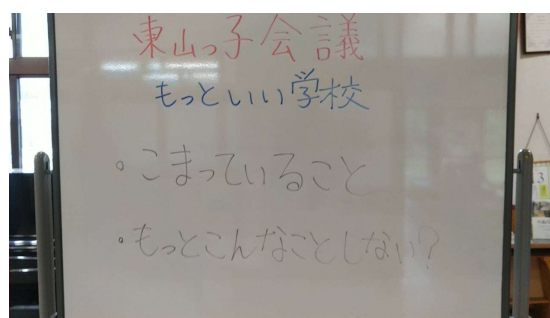 東山っ子会議
もっといい学校
・こまっていること
・もっとこんなことしない?
3